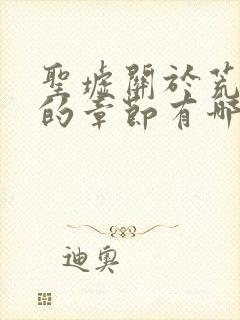 聖墟關於荒
的章節有哪
迪奧